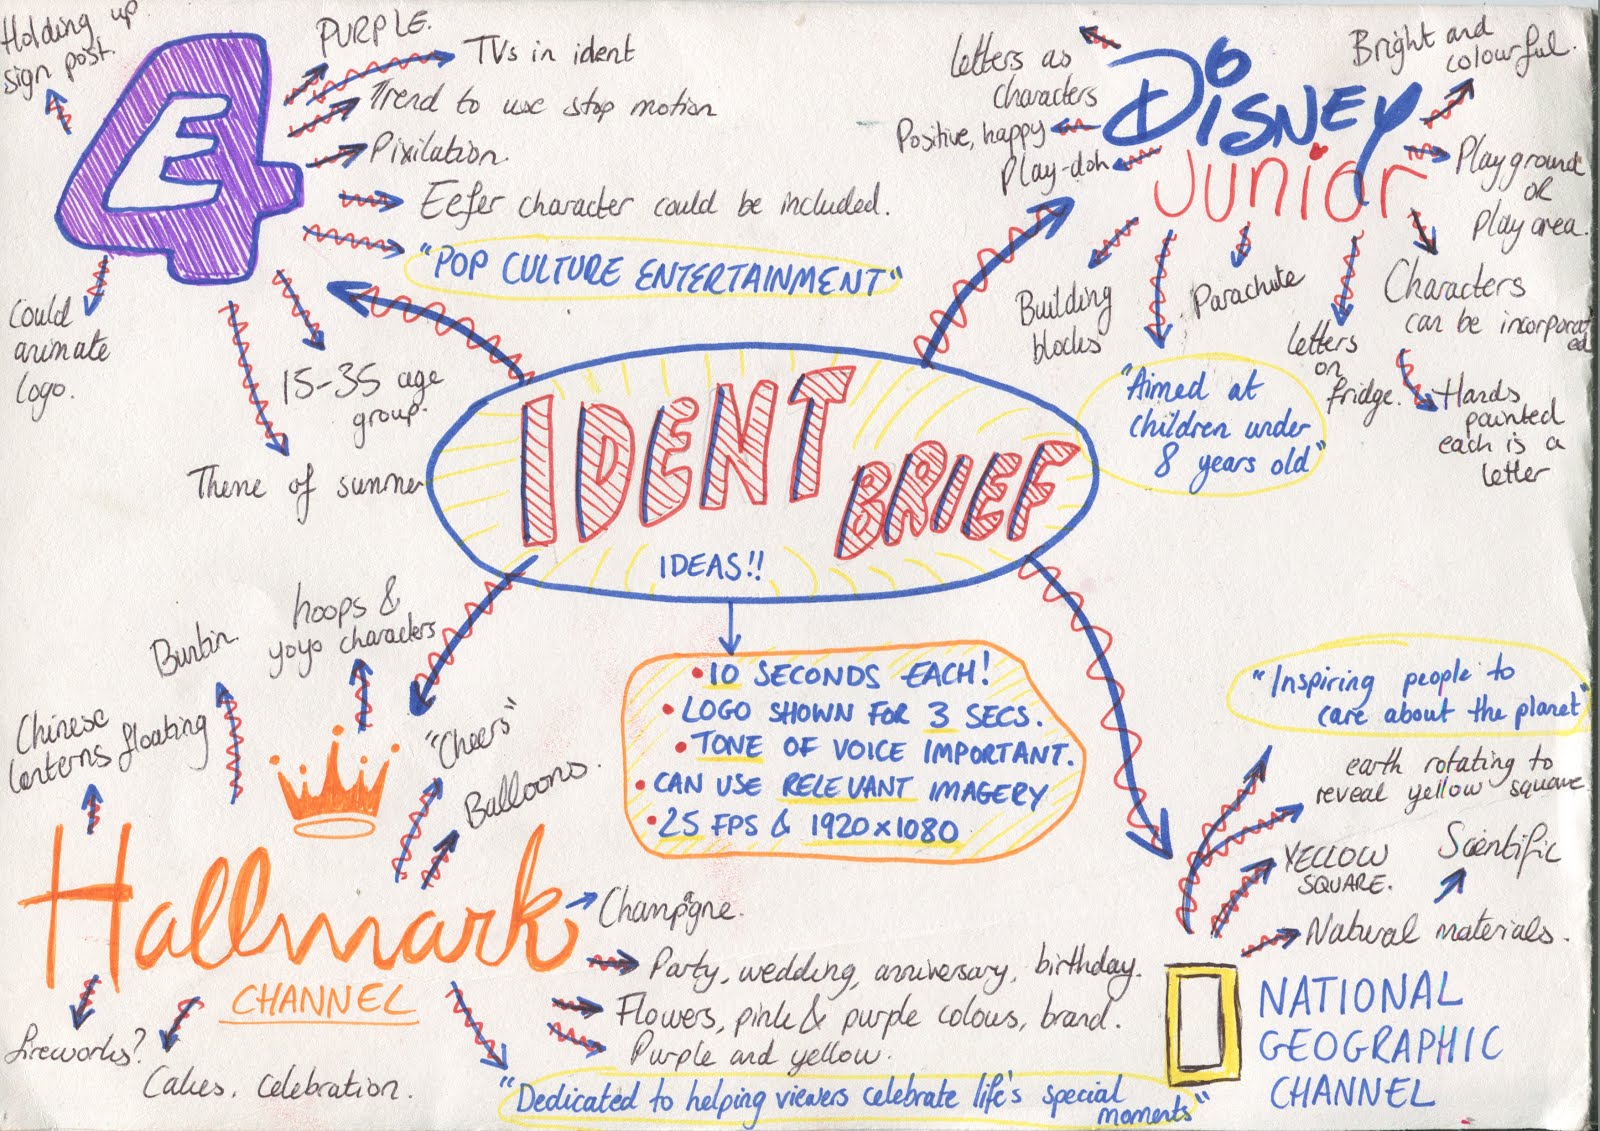 Holding up
sign post.
E4
PURPLE.
TVs in ident
Trend to use stop motion
Pixilation.
Eefer character could be included.
"POP CULTURE ENTERTAINMENT"
Could
animate
logo.
15-35 age
group.
Theme of summer
Letters as
characters
Positive, happy
Play-doh
DISNEY
Junior
Bright and
colourful.
Playground
or
play area.
Building
blocks
Parachute
Characters
can be incorporat
ed
"Aimed at
children under
8 years old"
Letters
on
fridge.
Hands
painted
each is a
letter
IDENT
BRIEF
IDEAS!!
• 10 SECONDS EACH!
• LOGO SHOWN FOR 3 SECS.
• TONE OF VOICE IMPORTANT.
• CAN USE RELEVANT IMAGERY
• 25 FPS & 1920x1080
hoops &
yoyo characters
Chinese
lanterns floating
"Cheers"
Balloons.
Hallmark
CHANNEL
Champagne.
Party, wedding, anniversary, birthday.
Flowers, pink & purple colours, brand.
Purple and yellow.
fireworks?
Cakes, celebration.
"Dedicated to helping viewers celebrate life's special
moments"
"Inspiring people to
care about the planet"
earth rotating to
reveal yellow square.
YELLOW
SQUARE.
Scientific
Natural materials.
NATIONAL
GEOGRAPHIC
CHANNEL